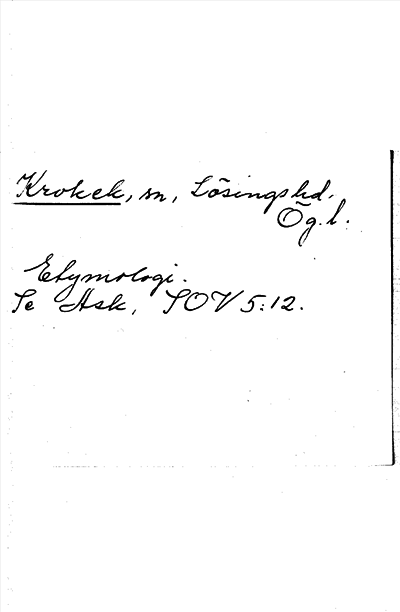 Krokek, sn, Lösings hd.
Ög. l.
Etymologi.
Se Ask, SOV 5:12.